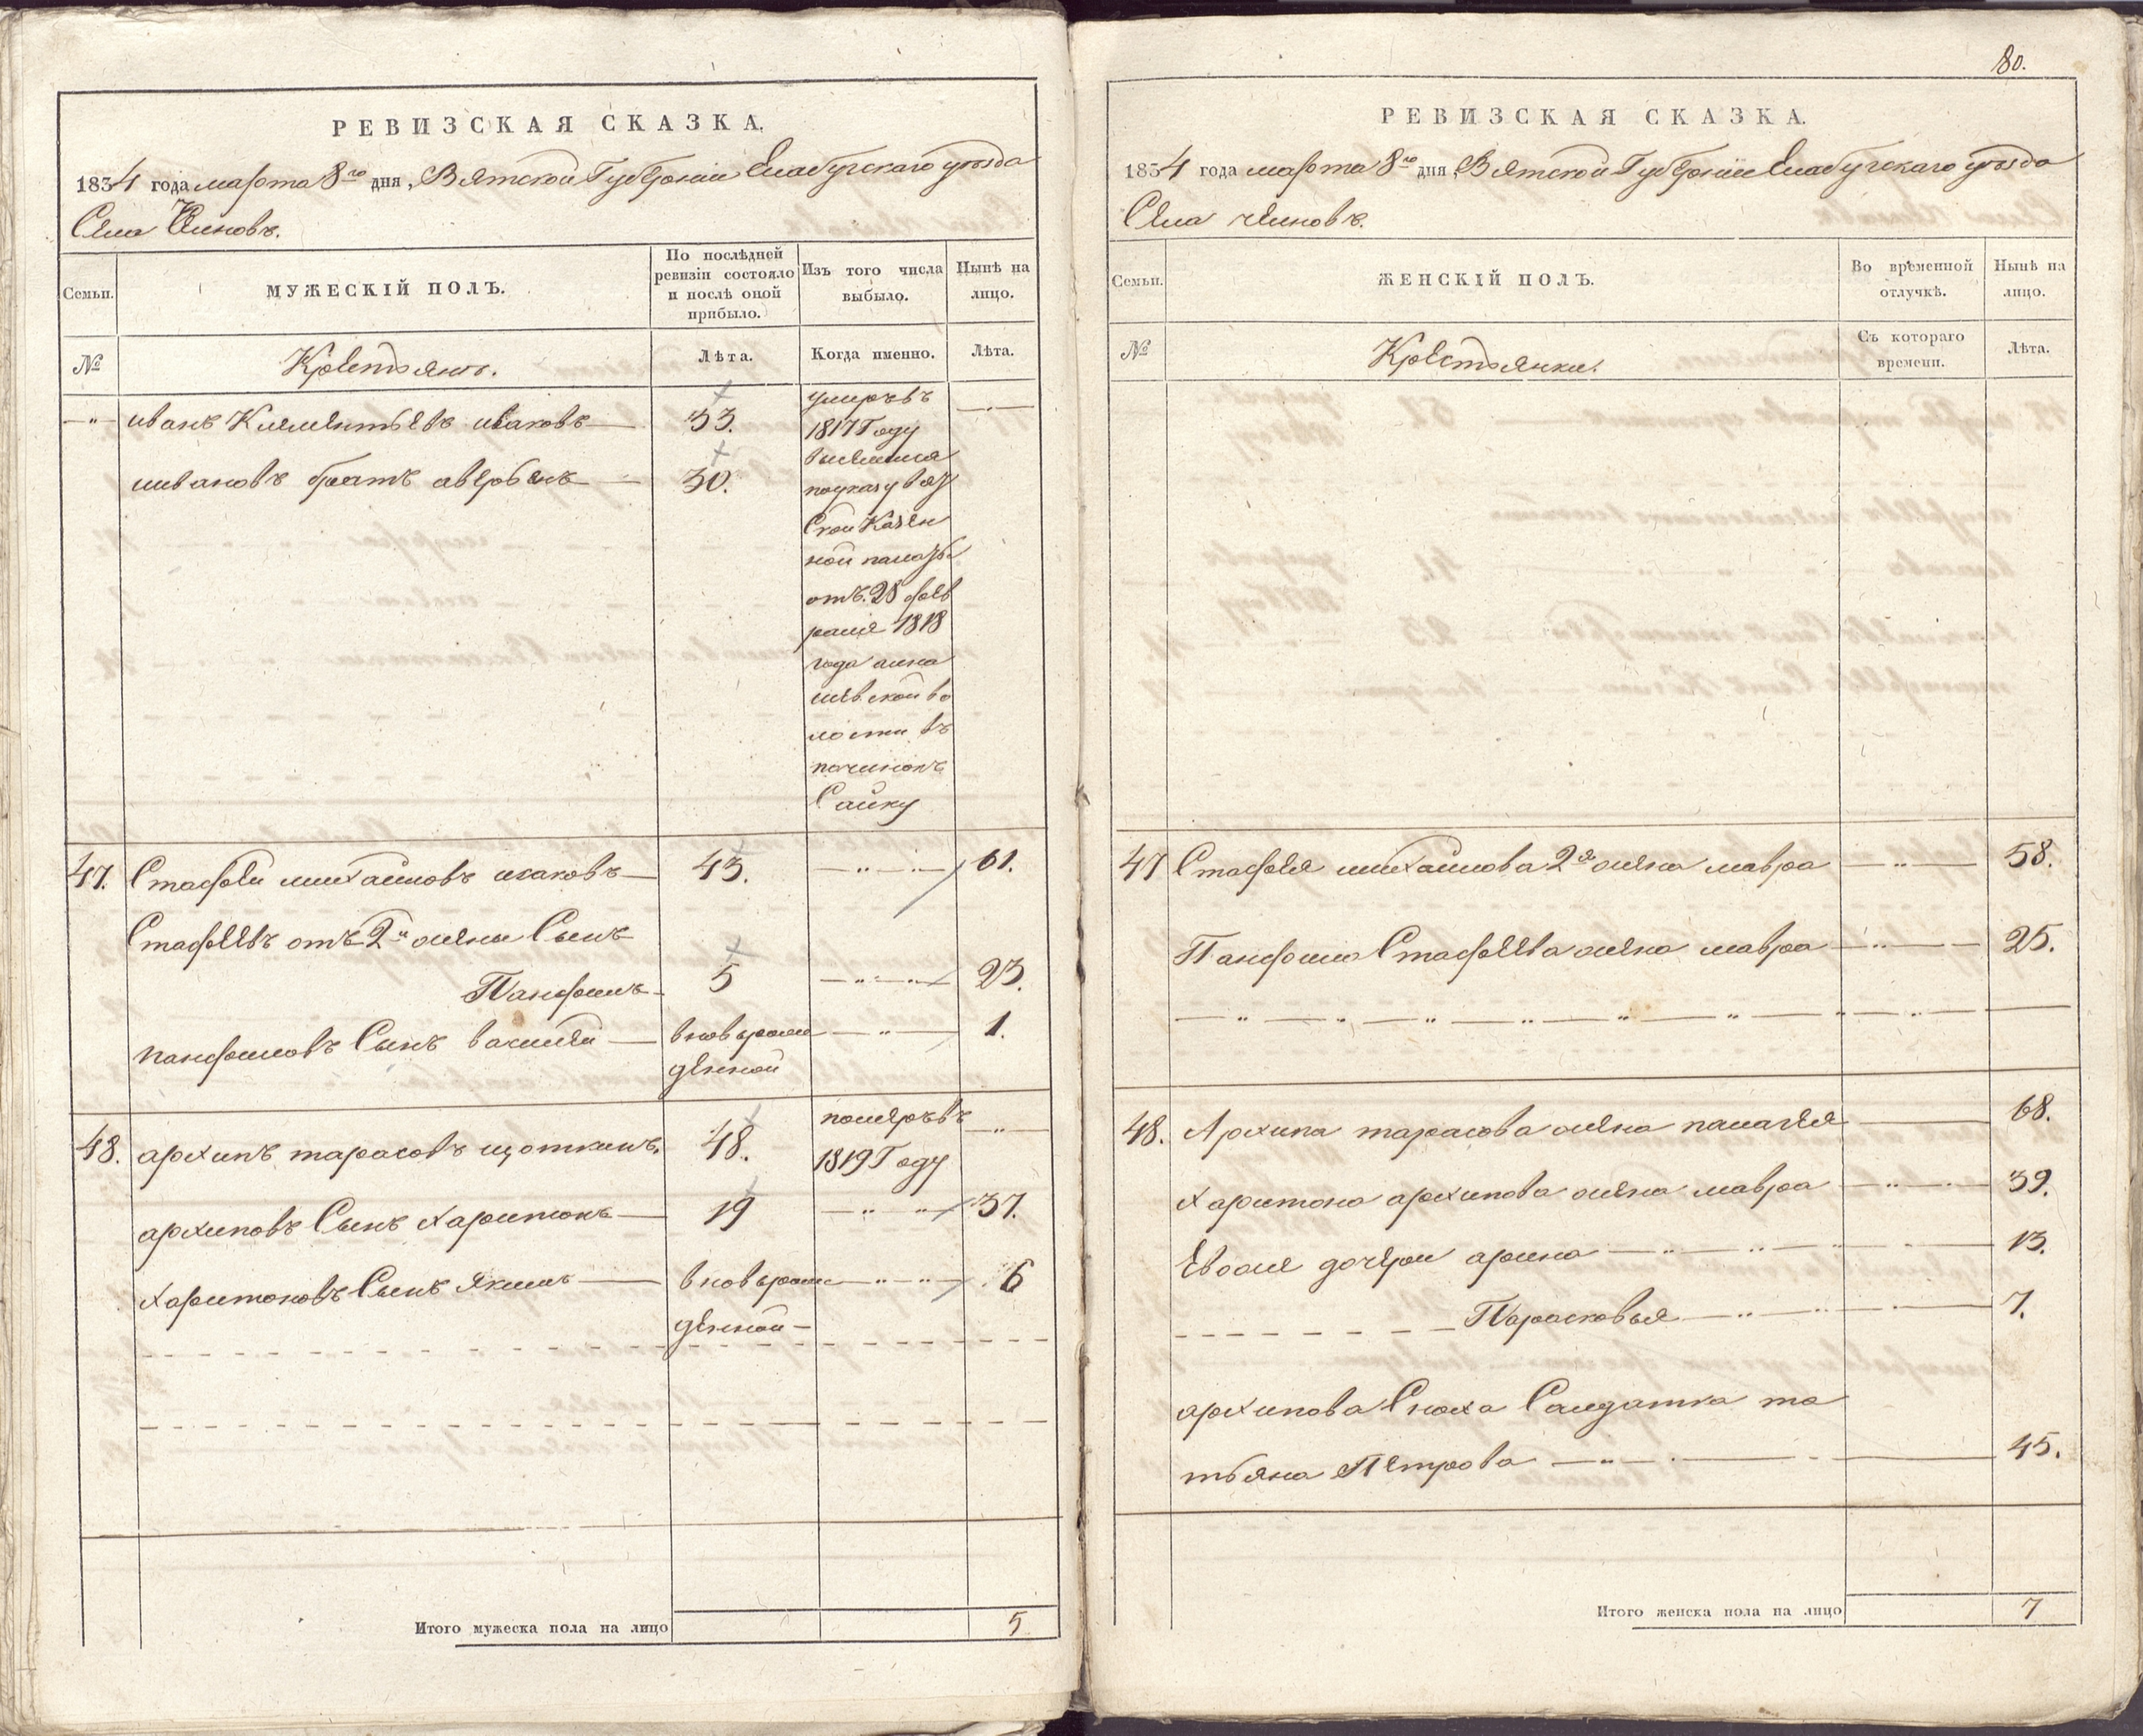 РЕВИЗСКАЯ СКАЗКА,
1834 года марта 8го дня, Вятской Губернии Елабугскаго уѣзда
Села
Семьи.
МУЖЕСКІЙ ПОЛЪ.
По послѣдней ревизіи состояло и послѣ оной прибыло.
Изъ того числа выбыло.
Нынѣ на лицо.
№
Крестьянъ.
Лѣта.
Когда именно.
Лѣта.
иванъ Клементьевъ исаковъ 33. умръвъ
1817 Году
ивановъ братъ 30.
поуказу вят
Ской Казен
ной палаты
отъ 28 фев
раля 1818
года
шевской во
лости въ
починокъ
Сайку
47. Стафей михайловъ исаковъ 43. 61.
Стафеевъ отъ 2й жены Сынъ
Панфилъ 5 23.
панфиловъ Сынъ василей вновьрож 1.
денной
48. архипъ тарасовъ щоткинъ. 48. померъвъ
1819 Году
архиповъ Сынъ харитонъ 19 37.
харитоновъ Сынъ якимъ вновьрож 6
денной
Итого мужеска пола на лицо 5
80.
РЕВИЗСКАЯ СКАЗКА.
1834 года марта 8го дня Вятской Губернии Елабугскаго уѣзда
Села
Семьи.
ЖЕНСКІЙ ПОЛЪ.
Во временной отлучкѣ.
Нынѣ на лицо.
№
Крестьянки.
Съ котораго времени.
Лѣта.
47 Стафея михайлова 2я жена мавра 58.
Панфила Стафеева жена мавра 25.
48. Архипа тарасова жена палагея 68.
харитона архипова жена мавра 39.
Евоже дочери арина 13.
Парасковья 7.
архипова Сноха Салдатка та
тьяна Петрова 45.
Итого женска пола на лицо 7